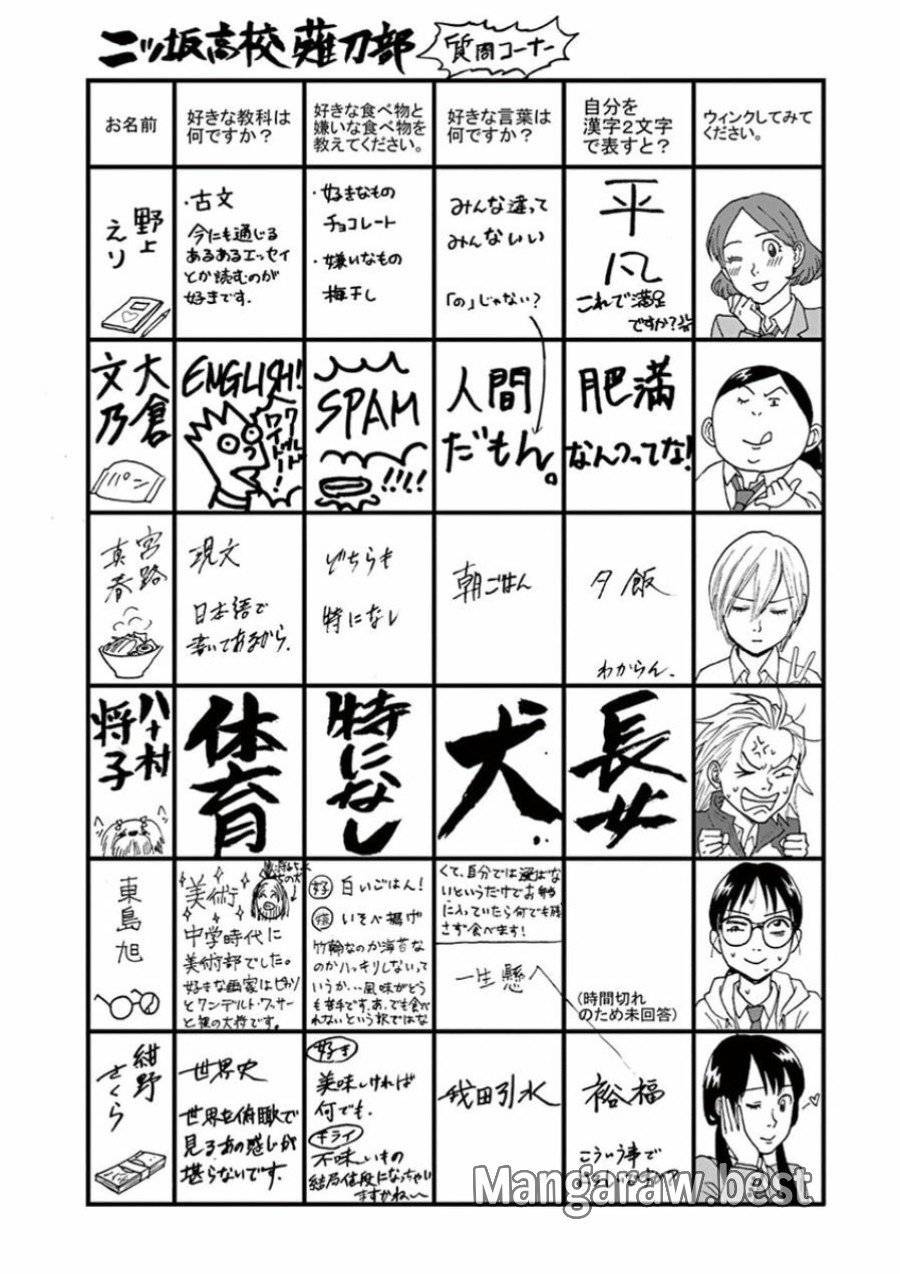 二ッ坂高校薙刀部
質問コーナー
お名前
好きな教科は
何ですか？
好きな食べ物と
嫌いな食べ物を
教えてください。
好きな言葉は
何ですか？
自分を
漢字2文字
で表すと？
ウィンクしてみて
ください。
野上
えり
・古文
今にも通じる
あるあるエッセイ
とか読むのが
好きです。
・好きなもの
チョコレート
・嫌いなもの
梅干し
みんな違って
みんないい
「の」じゃない？
平
凡
これで満足
ですか？
大倉
文乃
パン
ENGLISH!
SPAM
!!!!
人間
だもん。
肥満
なんつってな！
宮路
真春
現文
日本語で
書いてあるから。
どちらも
特になし
朝ごはん
夕飯
わからん。
八十村
将子
体育
特になし
犬
長女
東島
旭
美術
中学時代に
美術部でした。
好きな画家はピカソ
とフンデルト・ヴァッサー
と裸の大将です。
好 白いごはん！
嫌 いそべ揚げ
竹輪なのか海苔な
のかハッキリしないって
いうか…風味がどう
も苦手です。あ、でも食べ
れないという訳ではな
くて、自分では選ばな
いというだけでお弁当
に入っていたら何でも残
さず食べます！
一生懸
（時間切れ
のため未回答）
紺野
さくら
世界史
世界を俯瞰で
見るあの感じが
堪らないです。
好き
美味しければ
何でも。
キライ
不味いもの
結局値段になっちゃい
ますかね〜
我田引水
裕福
こういう事で
Mangaraw.best